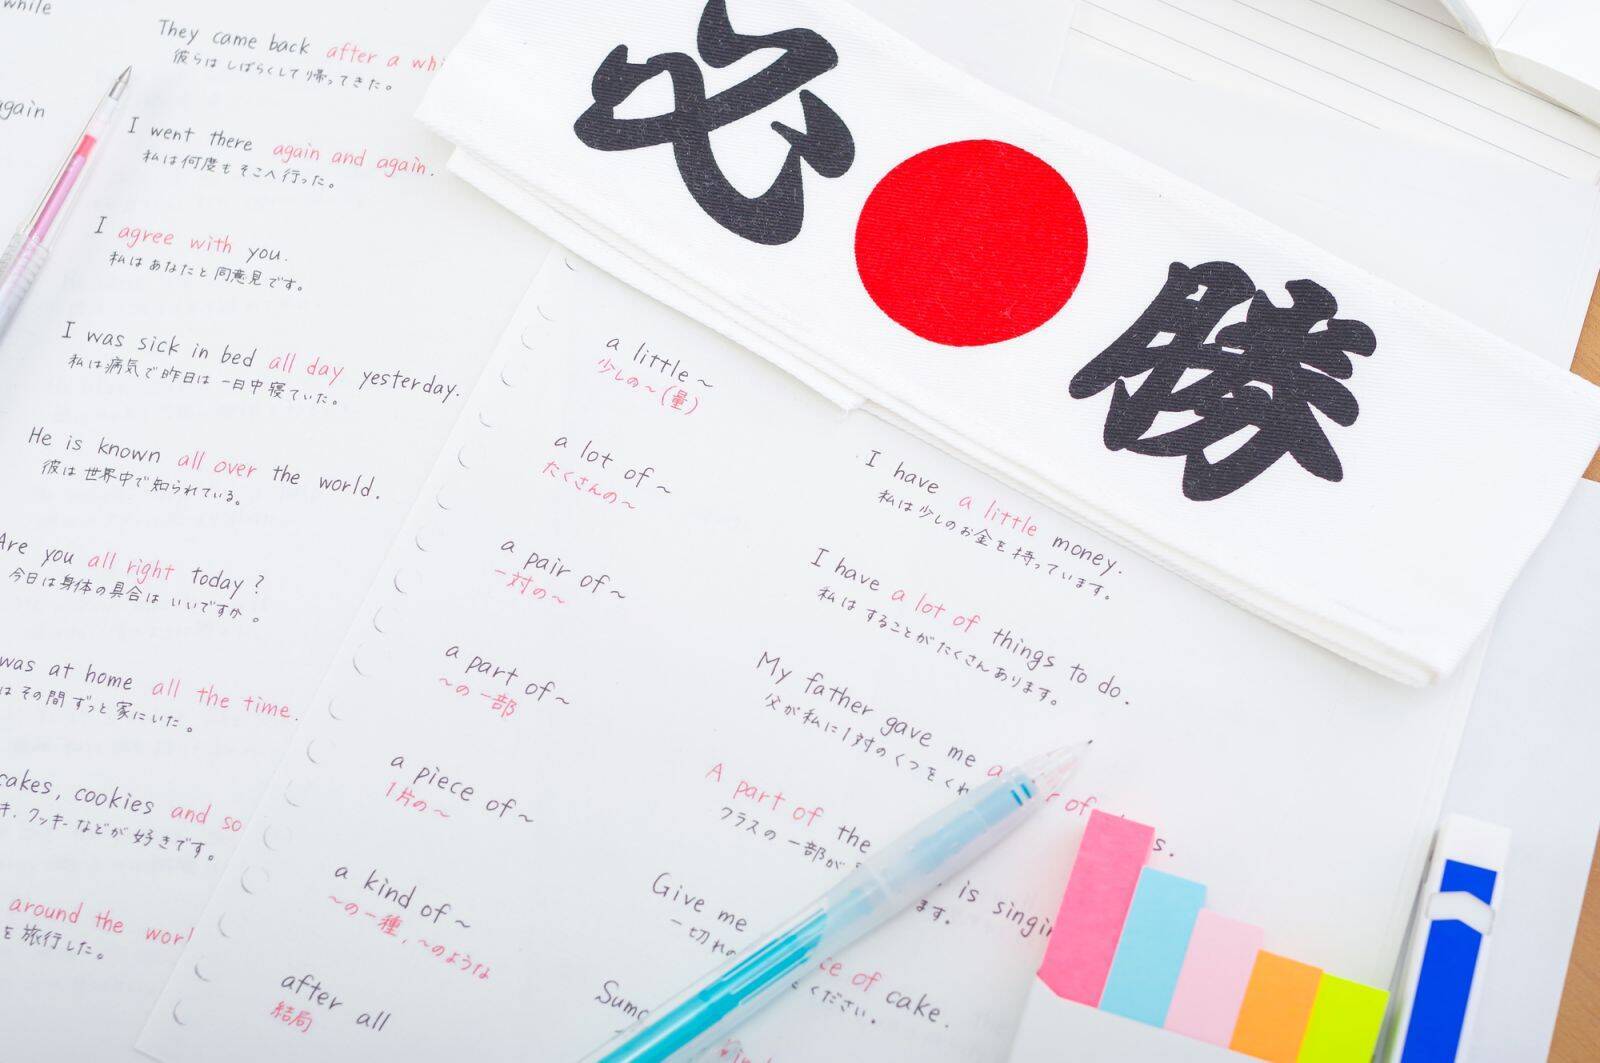 while
They came back after a whi
彼らは しばらくして 帰ってきた。
again
I went there again and again.
私は何度もそこへ行った。
I agree with you.
私はあなたと同意見です。
I was sick in bed all day yesterday.
私は病気で昨日は一日中寝ていた。
He is known all over the world.
彼は世界中で知られている。
Are you all right today?
今日は身体の具合はいいですか。
was at home all the time.
はその間ずっと家にいた。
cakes, cookies and so
キ、クッキーなどが好きです。
around the worl
を旅行した。
必勝
a little ~
少しの~(量)
a lot of ~
たくさんの~
a pair of ~
一対の~
a part of ~
~の一部
a piece of ~
1片の~
a kind of ~
~の一種、~のような
after all
結局
I have a little money.
私は少しのお金を持っています。
I have a lot of things to do.
私はすることがたくさんあります。
My father gave me a r of s.
父が私に1対のくつをくれ
A part of the is singin
クラスの一部が ます。
Give me ce of cake.
一切れの ください。
Sumo